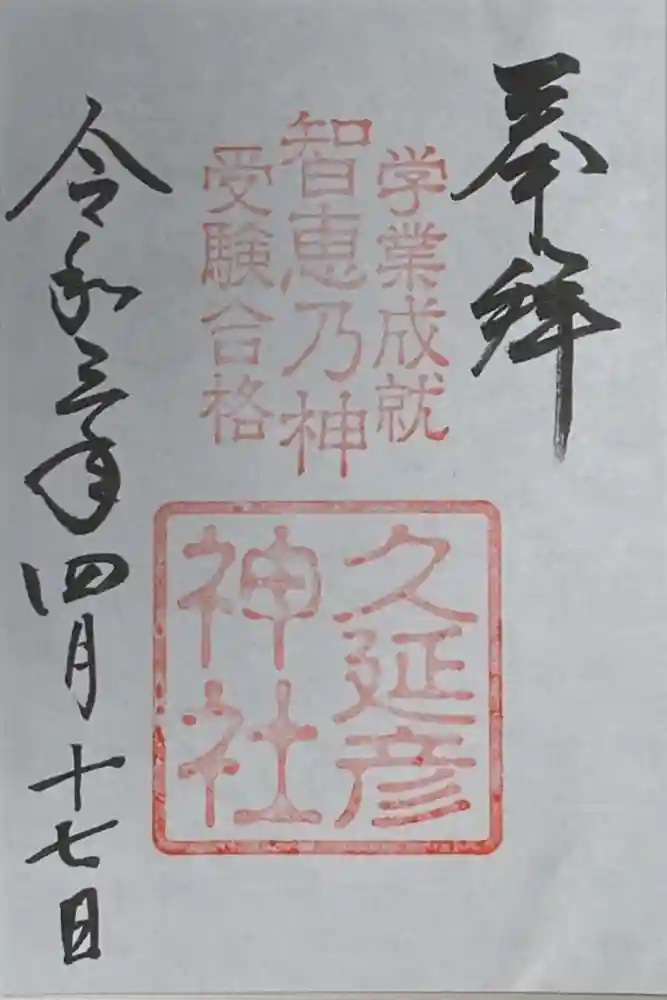 奉拝
学業成就
智恵乃神
受験合格
久延彦
神社
令和三年四月十七日